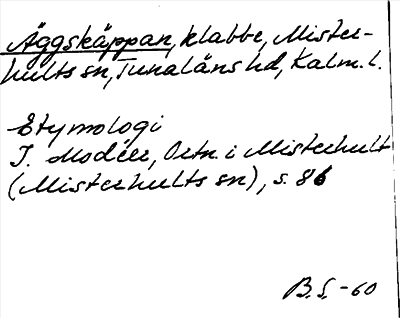 Äggskäppan, klabbe, Mister-
hults sn, Tunaläns hd, Kalm. l.
Etymologi
I. Modéer, Ortn. i Misterhult
(Misterhults sn), s. 86
B.S. -60